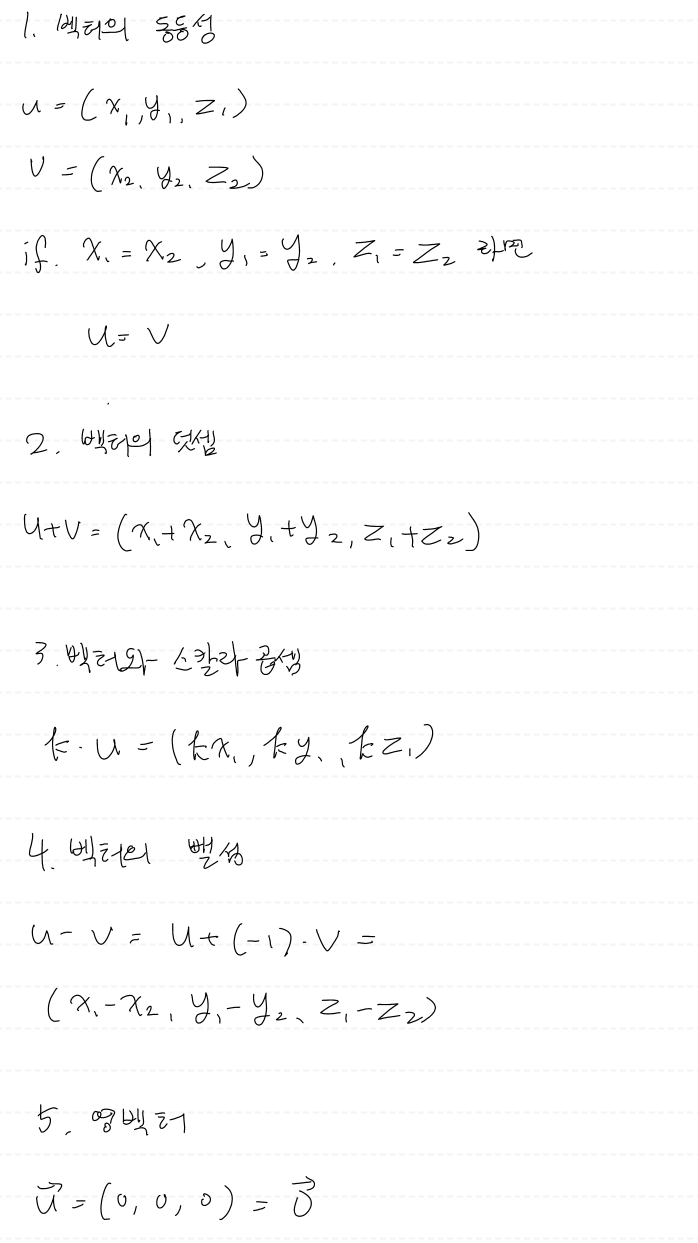 1. 벡터의 동등성
u = (x₁, y₁, z₁)
v = (x₂, y₂, z₂)
if. x₁ = x₂, y₁ = y₂, z₁ = z₂ 라면
u = v
2. 벡터의 덧셈
u+v = (x₁+x₂, y₁+y₂, z₁+z₂)
3. 벡터와 스칼라 곱셈
k · u = (kx₁, ky₁, kz₁)
4. 벡터의 뺄셈
u - v = u + (-1) · v =
(x₁-x₂, y₁-y₂, z₁-z₂)
5. 영벡터
u⃗ = (0, 0, 0) = 0⃗